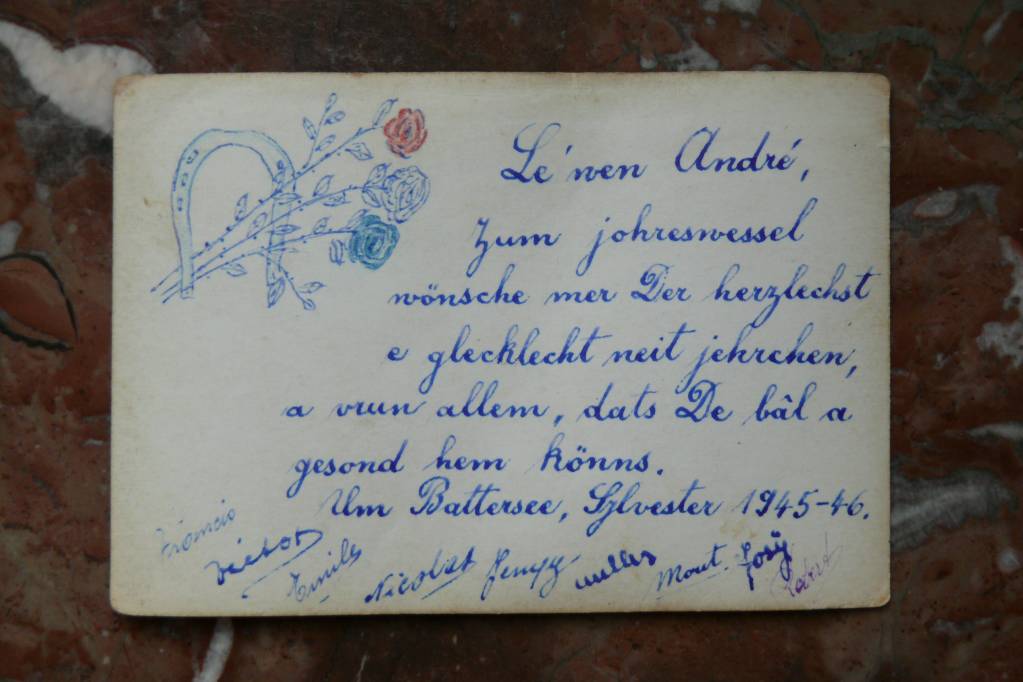 Lé'wen André,
Zum johreswessel
wönsche mer Der herzlechst
e glecklecht neit jehrchen,
a vrun allem, dats De bâl a
gesond hem könns.
Um Battersee, Sylvester 1945-46.
Francis
Victor Emile Nicolas Jemgy Mout. Josÿ